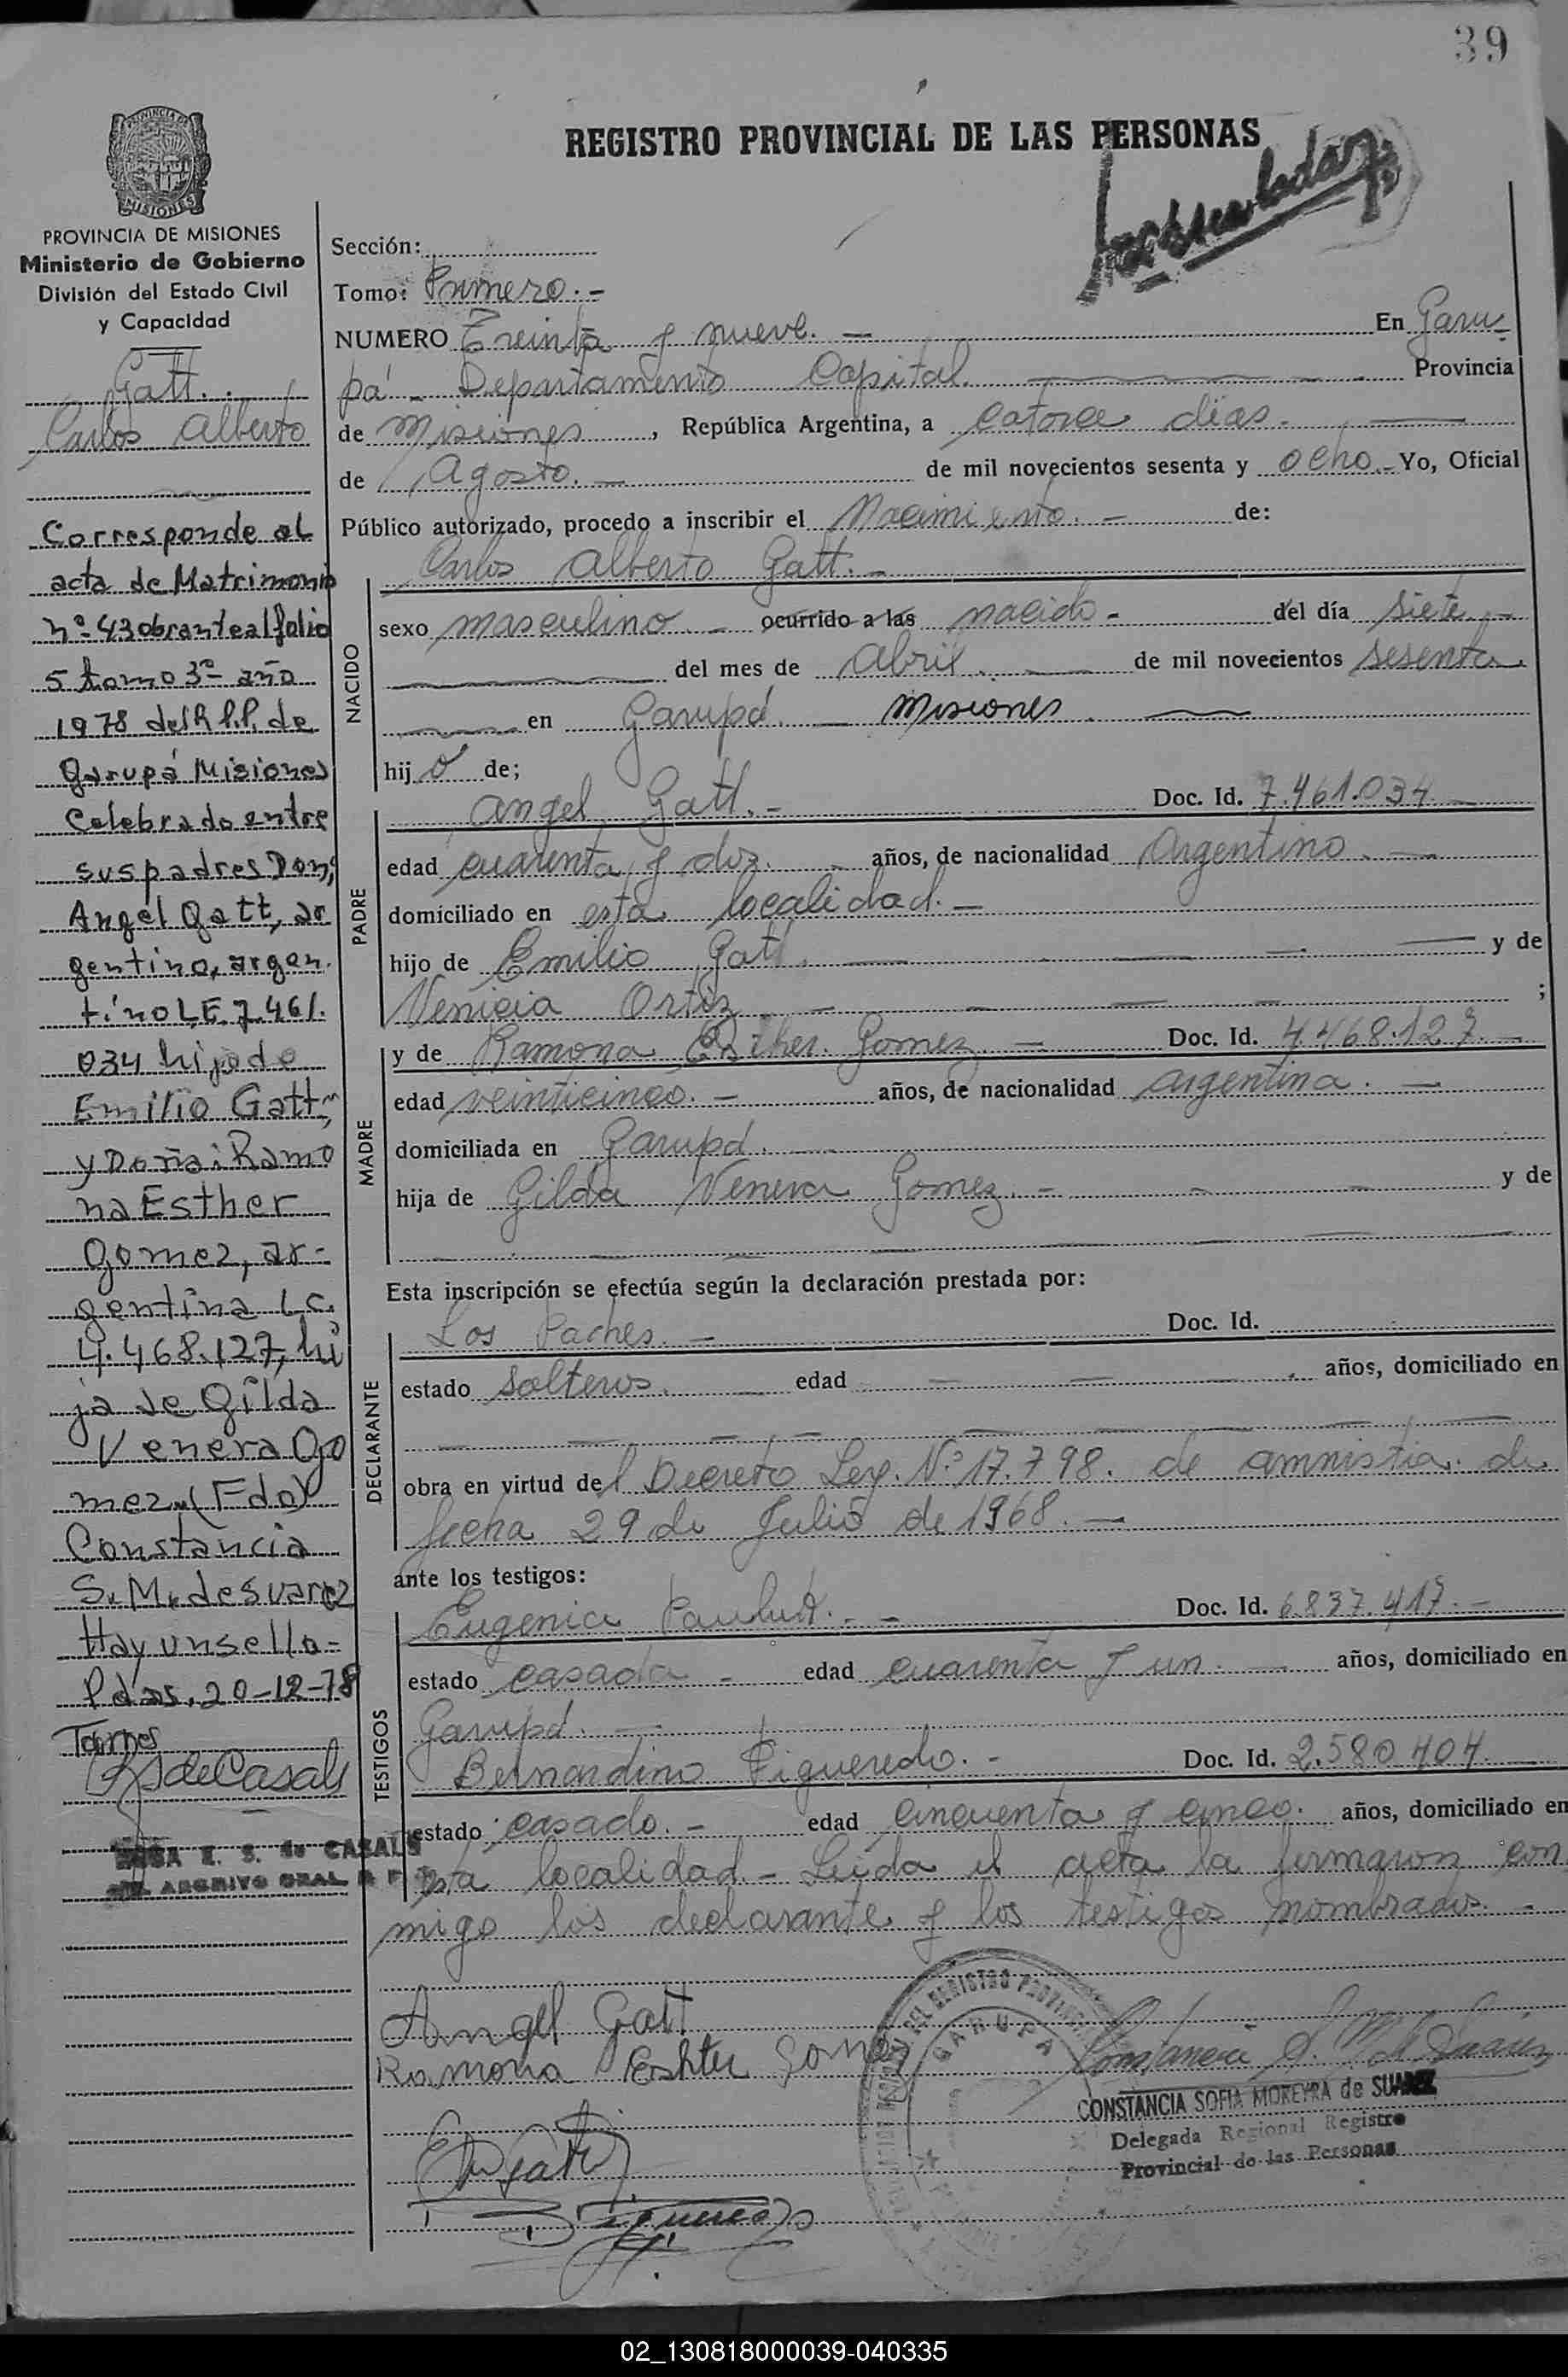 39
REGISTRO PROVINCIAL DE LAS PERSONAS
PROVINCIA DE
MISIONES
PROVINCIA DE MISIONES
Ministerio de Gobierno
División del Estado Civil
y Capacidad
Gatt.
Carlos Alberto
Corresponde al
acta de Matrimonio
nº 43 obrante al folio
5 tomo 3º año
1978 del R.P.P. de
Garupá Misiones
Celebrado entre
sus padres Don;
Angel Gatt, ar
gentino, argen
tino L.E. 7.461.
034 hijo de
Emilio Gatt
y Doña: Ramo
na Esther
Gomez, ar-
gentina L.C.
4.468.127, hi
ja de Gilda
Venera Go
mez (Fdo)
Constancia
S. M. de Suarez
Hay un sello-
Pdas, 20-12-78
de Casals
E. S. de CASALS
ARCHIVO GRAL
Sección:
Tomo: Primero.-
NUMERO Treinta y nueve.- En Garu-
pá - Departamento Capital Provincia
de Misiones, República Argentina, a catorce días
de Agosto.- de mil novecientos sesenta y ocho.- Yo, Oficial
Público autorizado, procedo a inscribir el Nacimiento.- de:
Carlos Alberto Gatt.-
NACIDO
sexo masculino - ocurrido a las nacido - del día siete -
del mes de Abril. de mil novecientos sesenta
en Garupá. - Misiones.
hij o de;
PADRE
Angel Gatt.- Doc. Id. 7.461.034
edad cuarenta y dos. años, de nacionalidad Argentino.
domiciliado en esta localidad.-
hijo de Emilio Gatt y de
Venicia Ortiz ;
MADRE
y de Ramona Esther Gomez.- Doc. Id. 4.468.127.-
edad veinticinco.- años, de nacionalidad argentina.
domiciliada en Garupá.
hija de Gilda Venera Gomez.- y de
Esta inscripción se efectúa según la declaración prestada por:
DECLARANTE
Los Padres.- Doc. Id.
estado Solteros. edad años, domiciliado en
obra en virtud del Decreto Ley. Nº 17.798. de amnistia de
fecha 29 de Julio de 1968.-
ante los testigos:
TESTIGOS
Eugenia Doc. Id. 6.837.417.-
estado casada - edad cuarenta y un años, domiciliado en
Garupá.
Bernardino Figueredo.- Doc. Id. 2.580.404.
estado casado.- edad cincuenta y cinco. años, domiciliado en
esta localidad.- Leida el acta la firmaron con
migo los declarante y los testigos nombrados.-
Angel Gatt
Ramona Eshter Gomez
B Figueredo
DEL REGISTRO PROVINCIAL
GARUPA
Constancia S. M. de Suárez
CONSTANCIA SOFIA MOREYRA de SUAREZ
Delegada Regional Registro
Provincial de las Personas
02_130818000039-040335